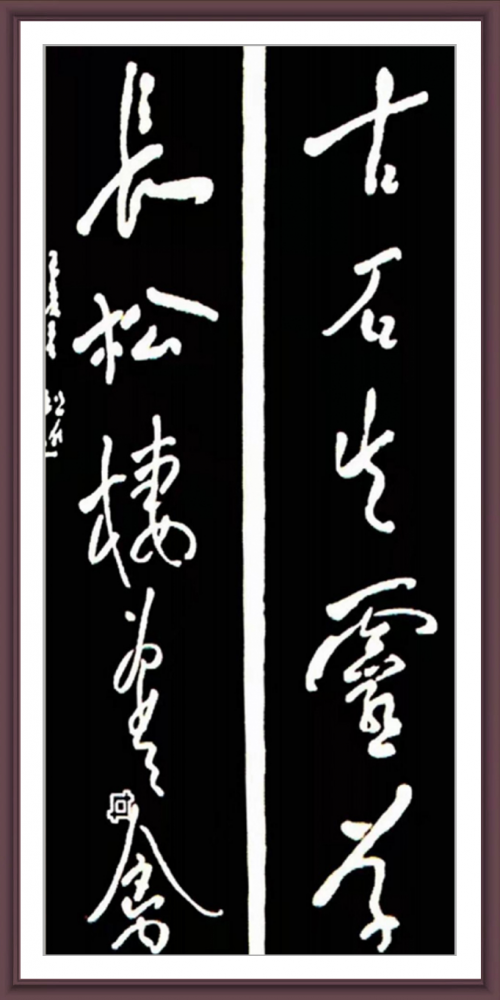 古石生靈草
長松棲異禽